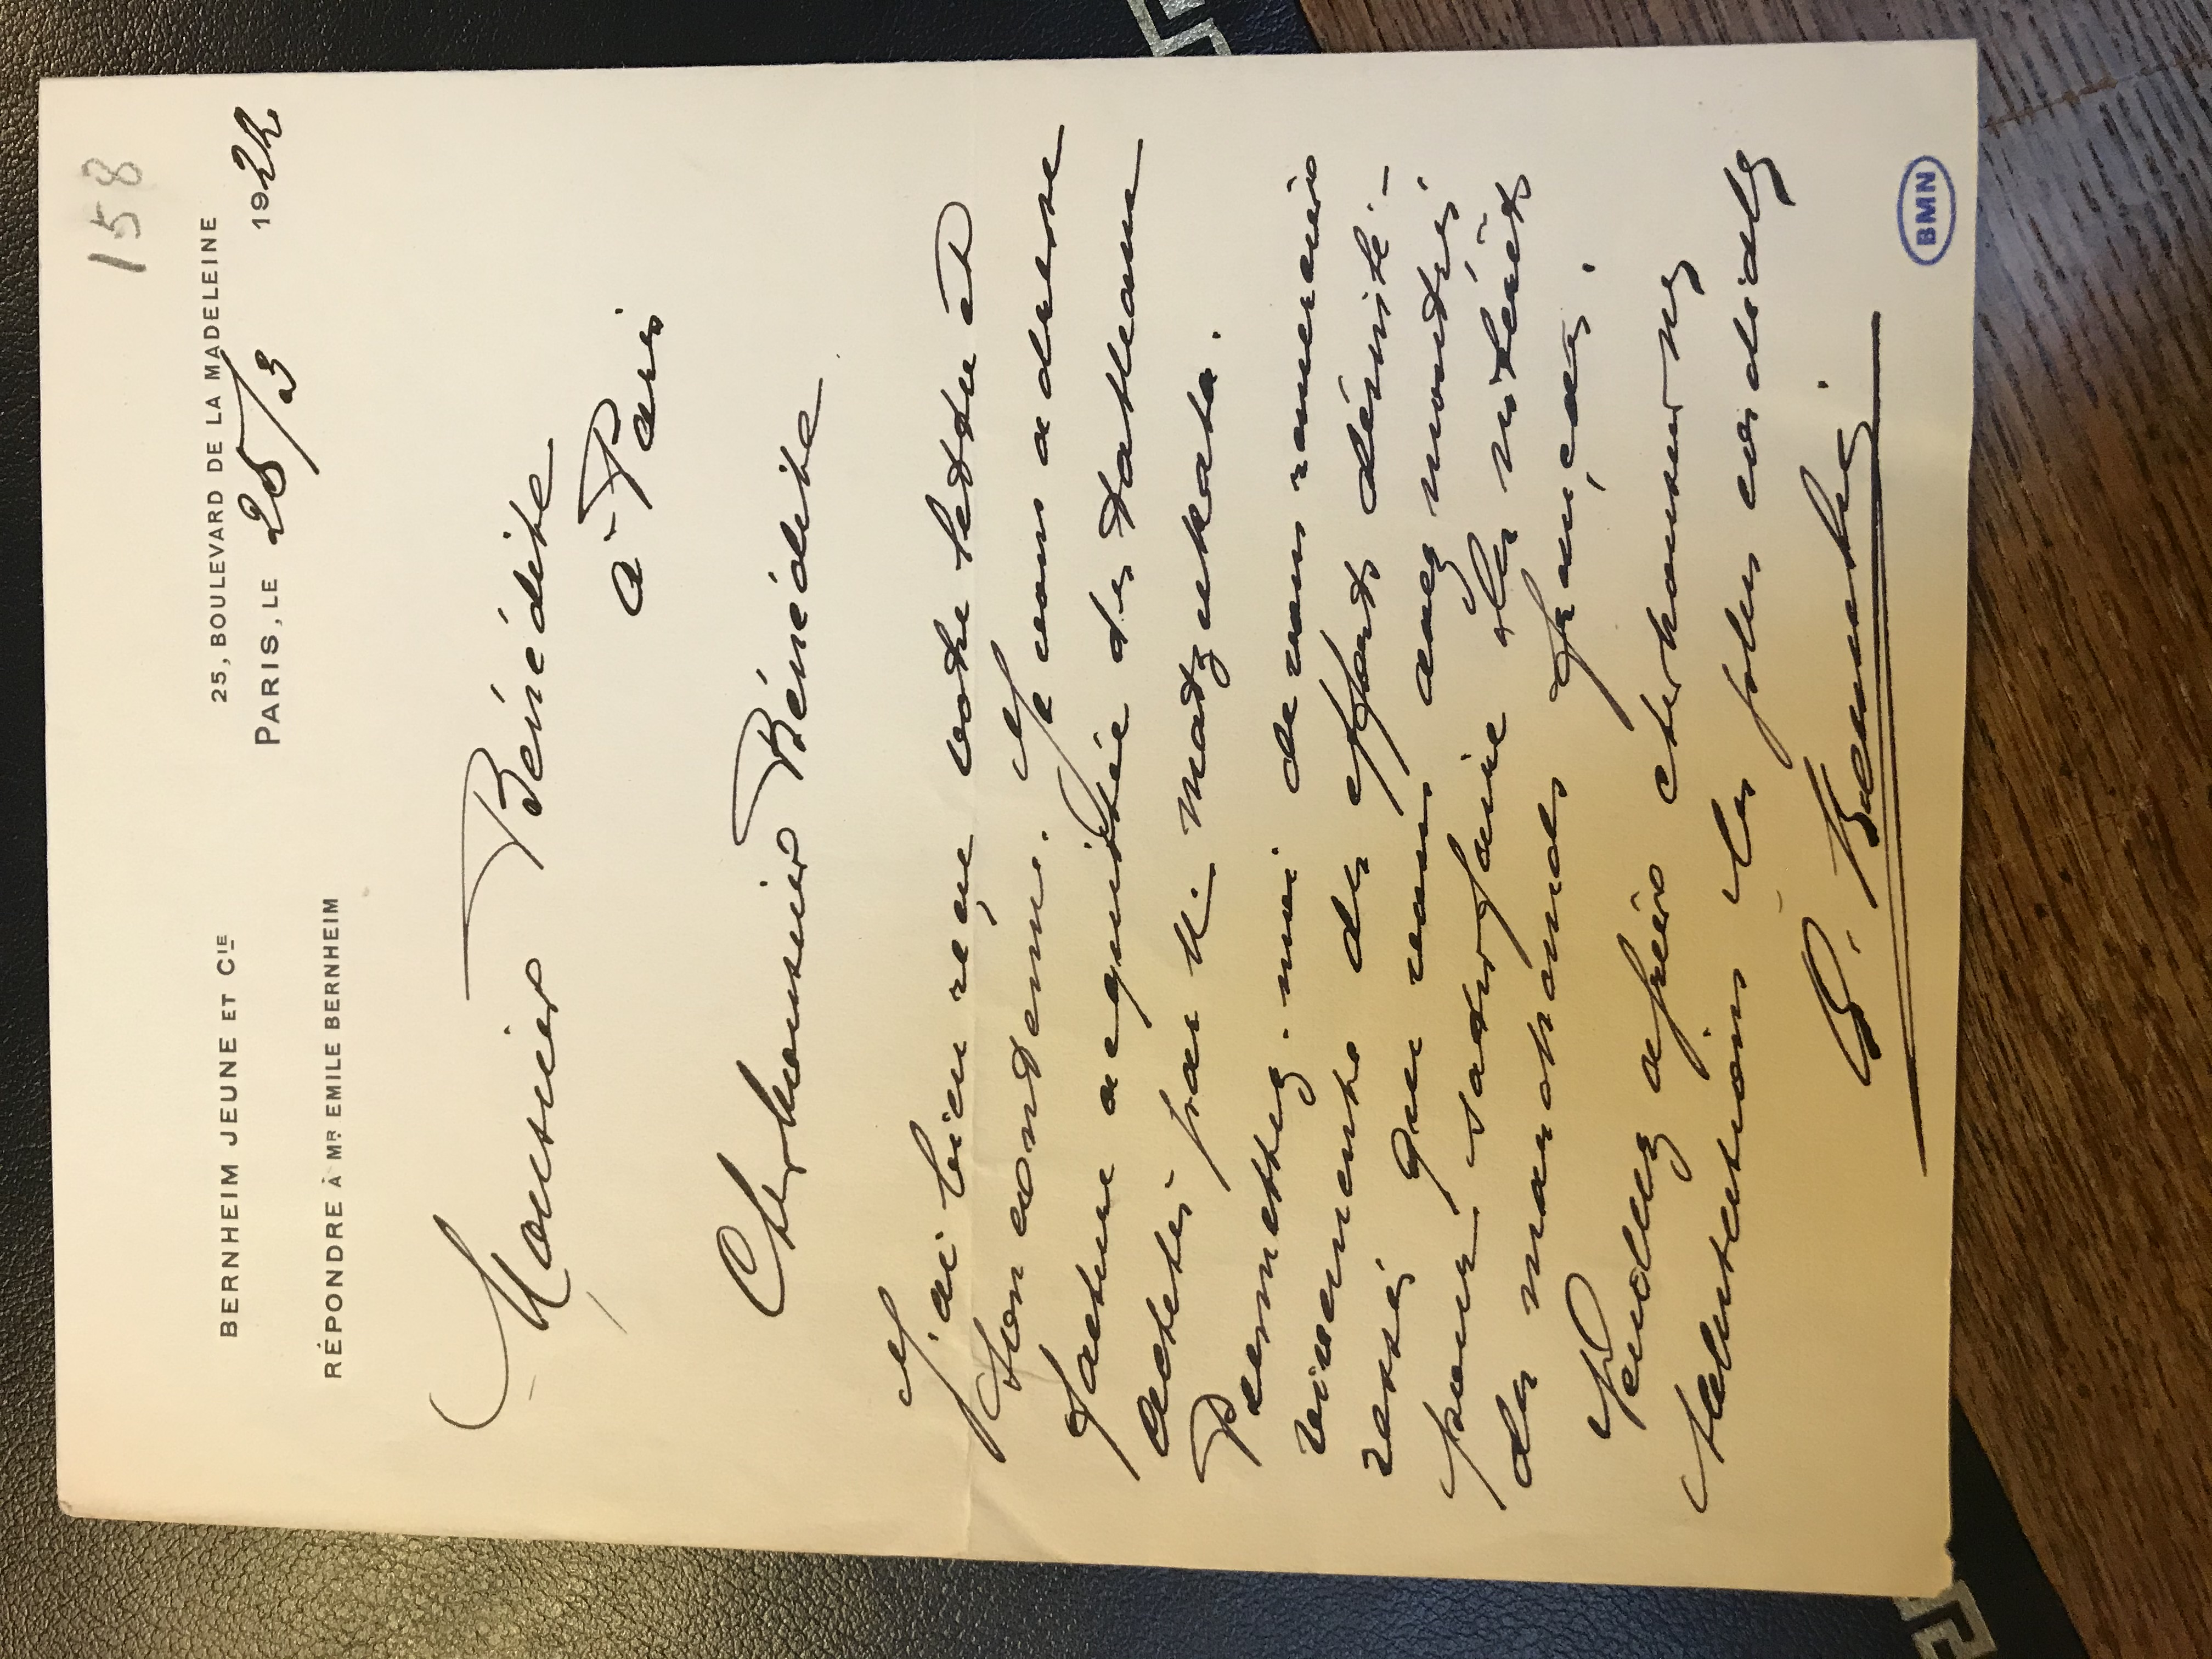 158
BERNHEIM JEUNE ET CIE
25, BOULEVARD DE LA MADELEINE
RÉPONDRE À MR EMILE BERNHEIM
PARIS, LE 25/3 1922
Monsieur Bénédite
à Paris
Cher monsieur Bénédite
J'ai bien reçu votre lettre et
son contenu. Je vous adresse
facture acquittée des tableaux
achetés par M. Matzukata.
Permettez-moi de vous remercier
vivement des efforts désinté-
ressés que vous avez montrés
pour satisfaire les intérêts
des marchands français.
Veuillez agréer cher monsieur mes
salutations les plus cordiales
E. Bernheim
BMN